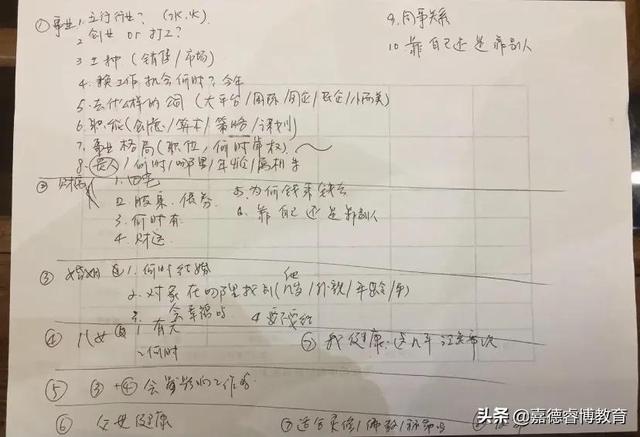 ① 事业 1. 立行行业？ (水.火)
2 创业 or 打工？
3 工种 (销售/市场)
4. 换工作机会何时？今年
5. 去什么样的公司 (大平台/国际/国企/民企/外商类)
6. 职能 (创意/算术/策略/计划)
7. 事业格局 (职位, 何时掌权)
8. 贵人/何时/哪里/年龄/属相等
9. 同事关系
10 靠自己还是靠别人
② 财 1. 田宅
2 股票. 债券
3. 何时有
4. 财运
5. 为何钱来钱去
6. 靠自己还是靠别人
③ 婚姻 1. 何时结婚
2. 对象在哪里找到 (他 /外貌/年龄/
3. 会幸福吗 4 要不要结
④ 儿女 1 有无
2 何时
⑤ ③+④ 会影响工作吗
⑥ 父母健康
⑦ 适合灵修/佛教/
⑦ 我健康:这几年注意事项
头条@嘉德睿博教育